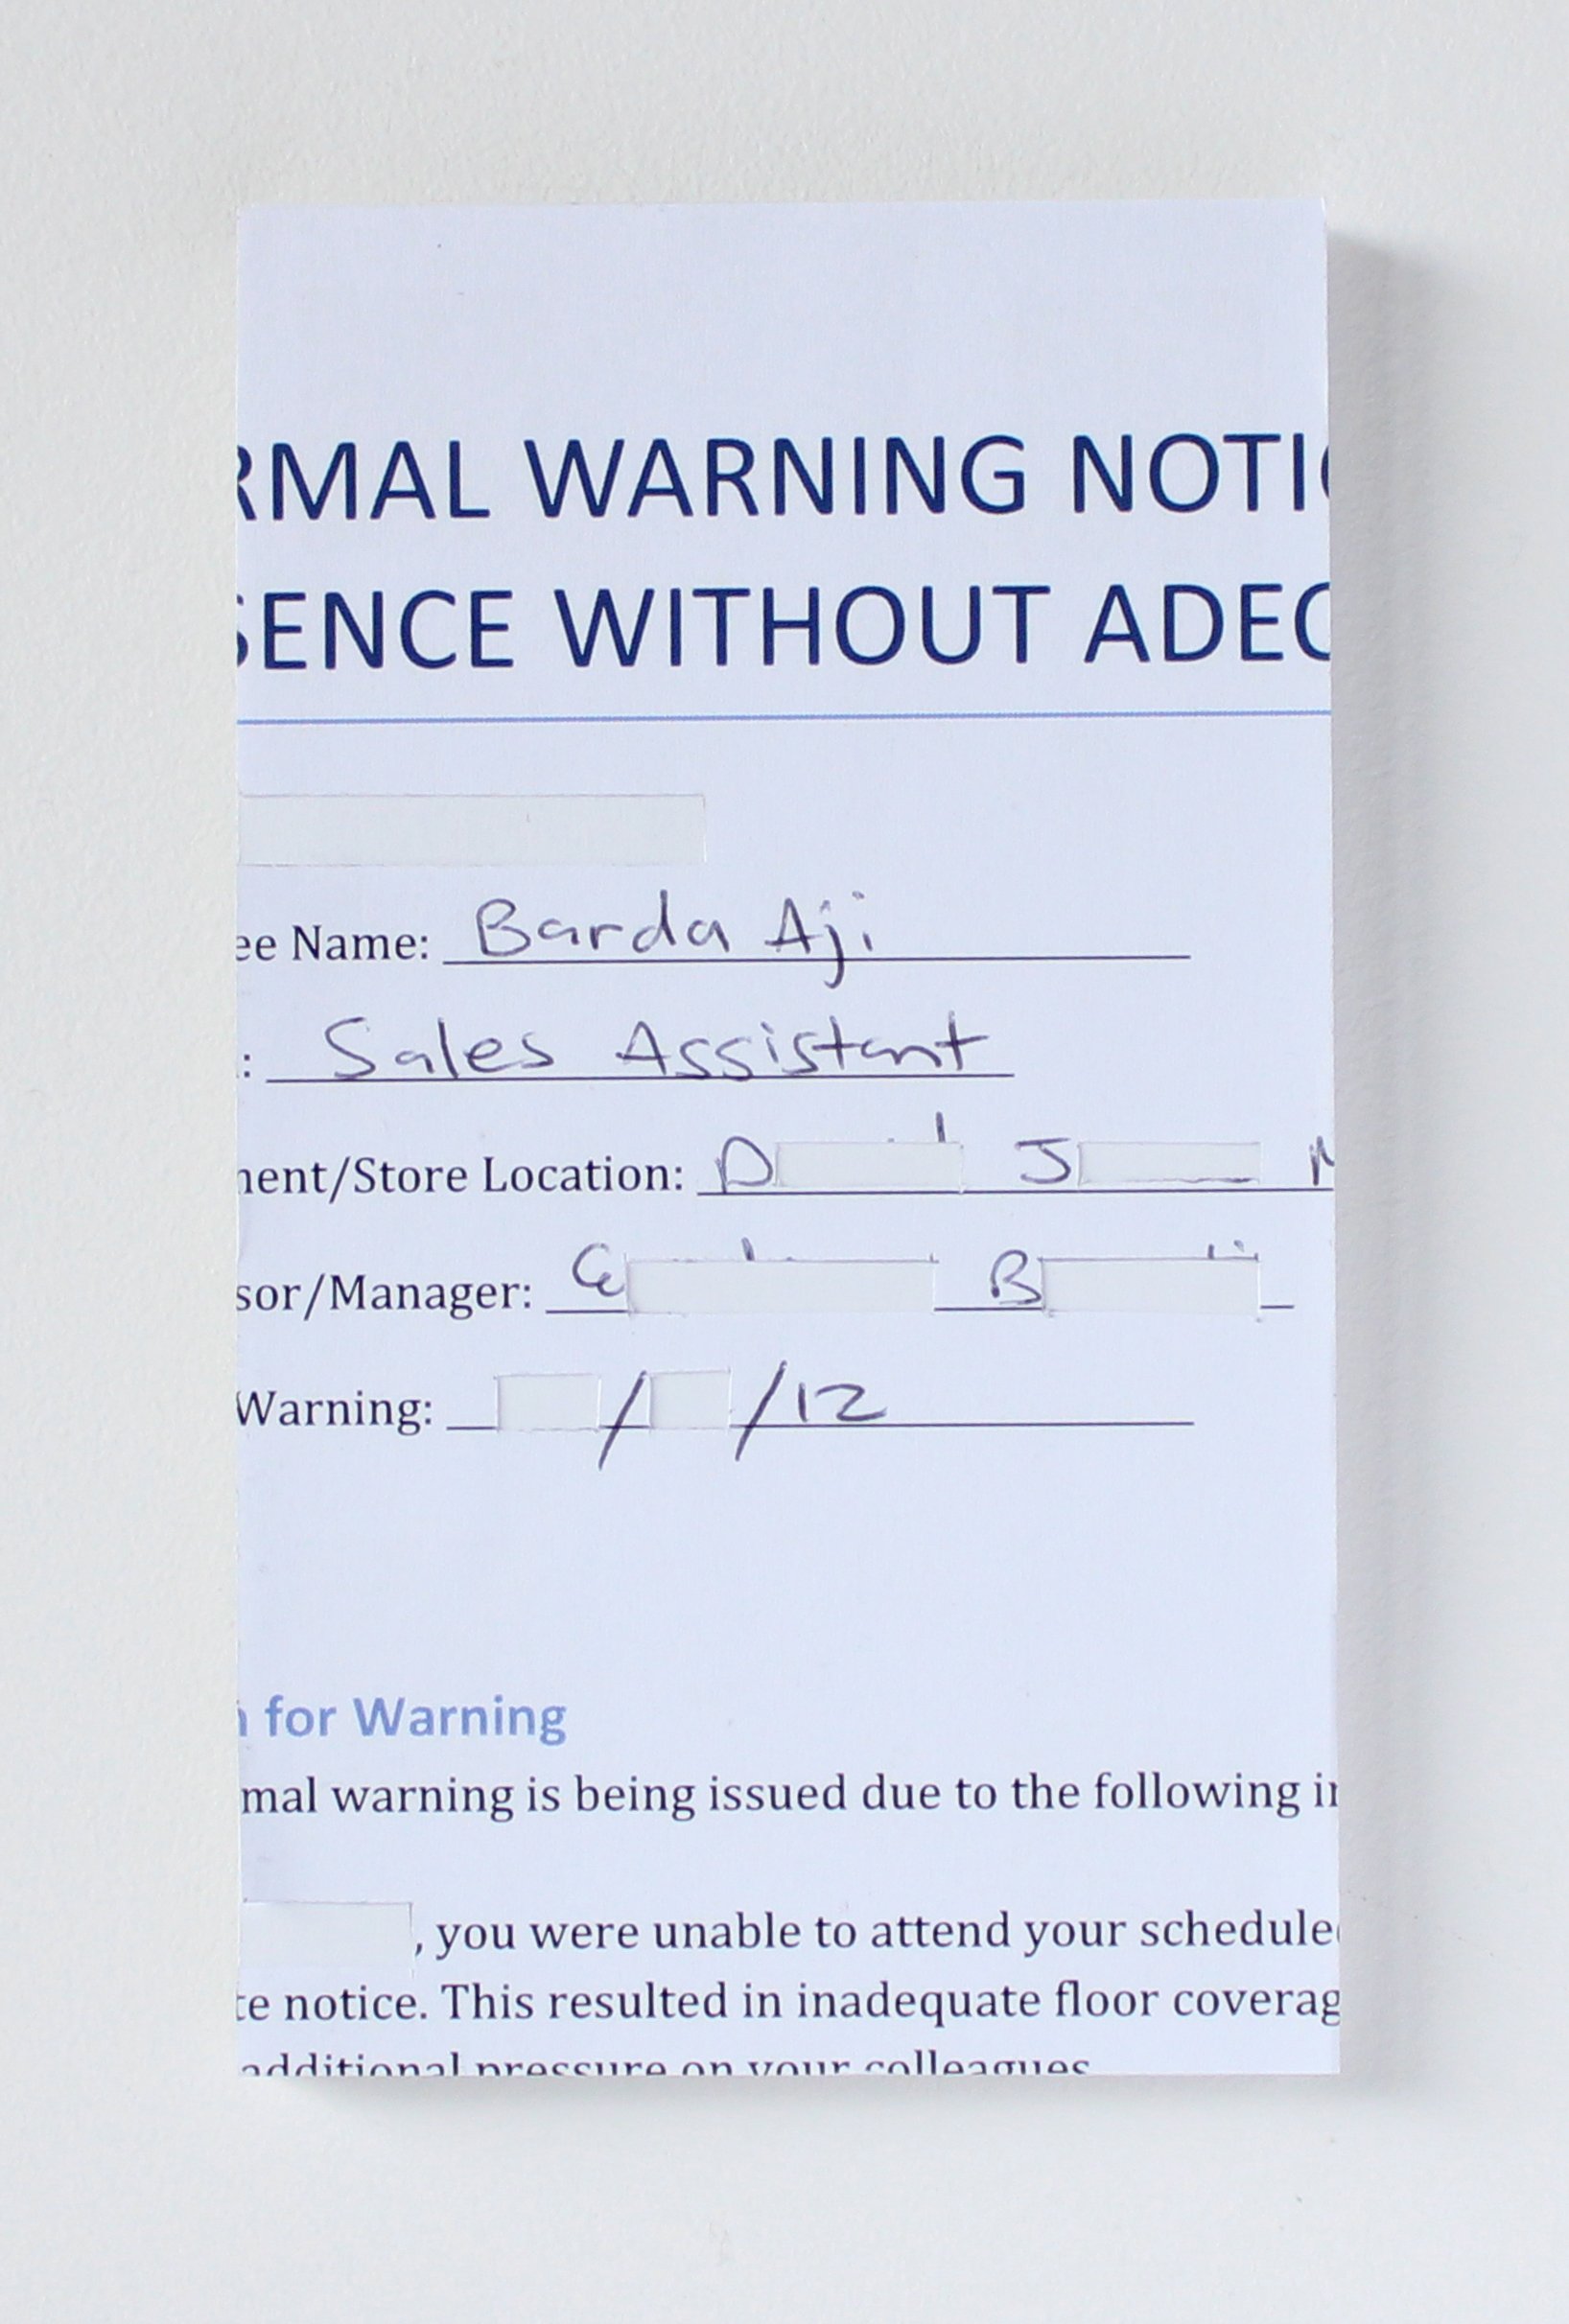 RMAL WARNING NOTI
SENCE WITHOUT ADEQ
ee Name: Barda Aji
: Sales Assistant
ment/Store Location: D J
sor/Manager: B
Warning: / /12
for Warning
mal warning is being issued due to the following in
, you were unable to attend your schedule
te notice. This resulted in inadequate floor coverag
additional pressure on your colleagues